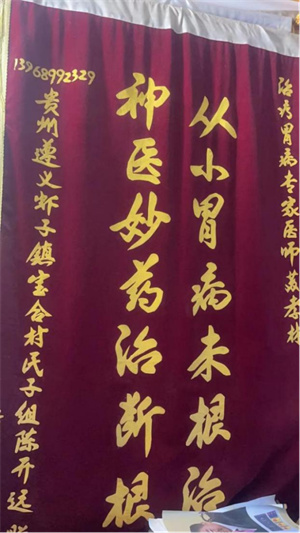 治疗胃病专家医师
从小胃病未根治
神医妙药治断根
贵州遵义虾子镇宝合村民子组陈开远
13968992329